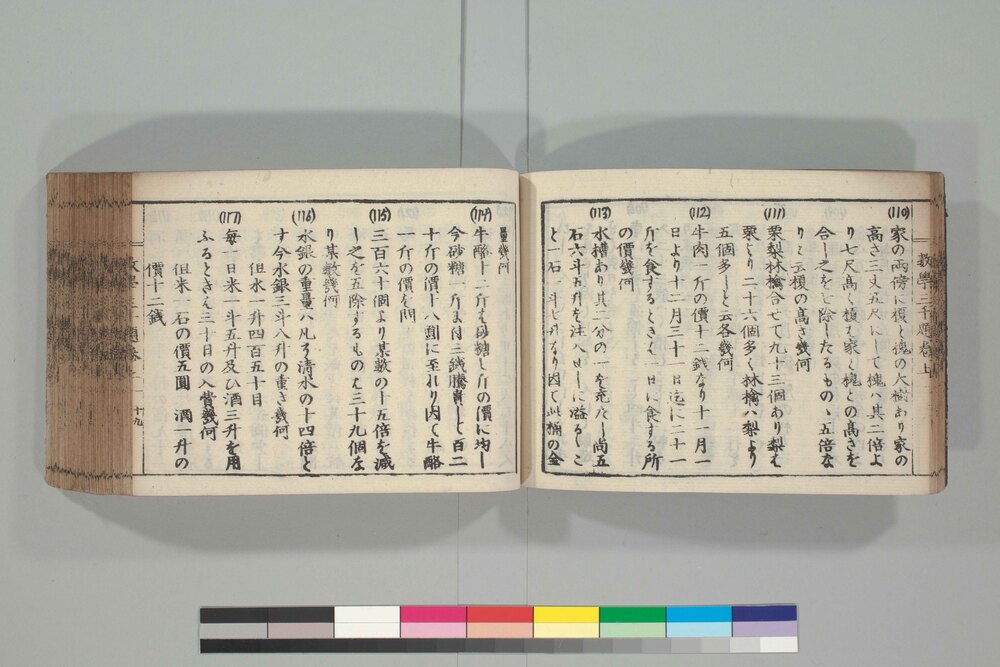 數學三千題卷上
(110)
家の兩傍に榎と槐の大樹あり家の
高さ三丈五尺にして槐ハ其二倍よ
り七尺高く榎ハ家と槐との高さを
合し之を七除したるものゝ五倍な
りと云榎の高さ幾何
(111)
栗梨林檎合せて九十三個あり梨ハ
栗より二十六個多く林檎ハ梨より
五個多しと云各幾何
(112)
牛肉一斤の價十二錢なり十一月一
日より十二月三十一日迄に二十一
斤を食するときハ一日に食する所
の價幾何
(113)
水槽あり其二分の一を充たし尚五
石六斗五升を注入せしに溢るゝこ
と一石一斗七升なり因て此桶の全
量幾何
(114)
牛酪十二斤ハ砂糖 斤の價に均し
今砂糖一斤ま付三錢騰貴しと百二
十斤の價十八圓に至れり内て牛酪
一斤の價を問
(115)
三百六十個より某數の十五倍を減
し之を五除するものハ三十九個な
り某數幾何
(116)
水銀の重量ハ凡そ清水の十四倍と
す今水銀三斗八升の重さ幾何
但水一升四百五十目
(117)
每一日米一斗五升及ひ酒三升を用
ふるときハ三十日の入費幾何
但米一石の價五圓 酒一升の
價十二錢
十九